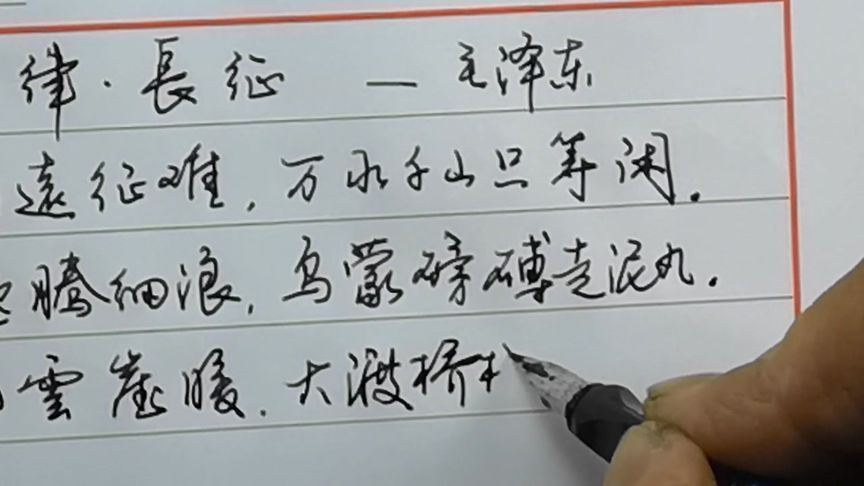 律·長征 — 毛泽东
遠征难，万水千山只等闲．
腾细浪，乌蒙磅礴走泥丸．
雲崖暖．大渡桥